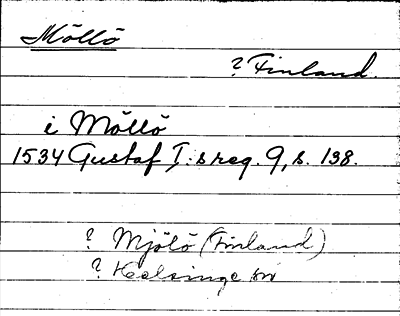 Möllö
? Finland.
i Möllö
1534 Gustaf I:s reg. 9, s. 138.
? Mjölö (Finland)
? Helsinge sn